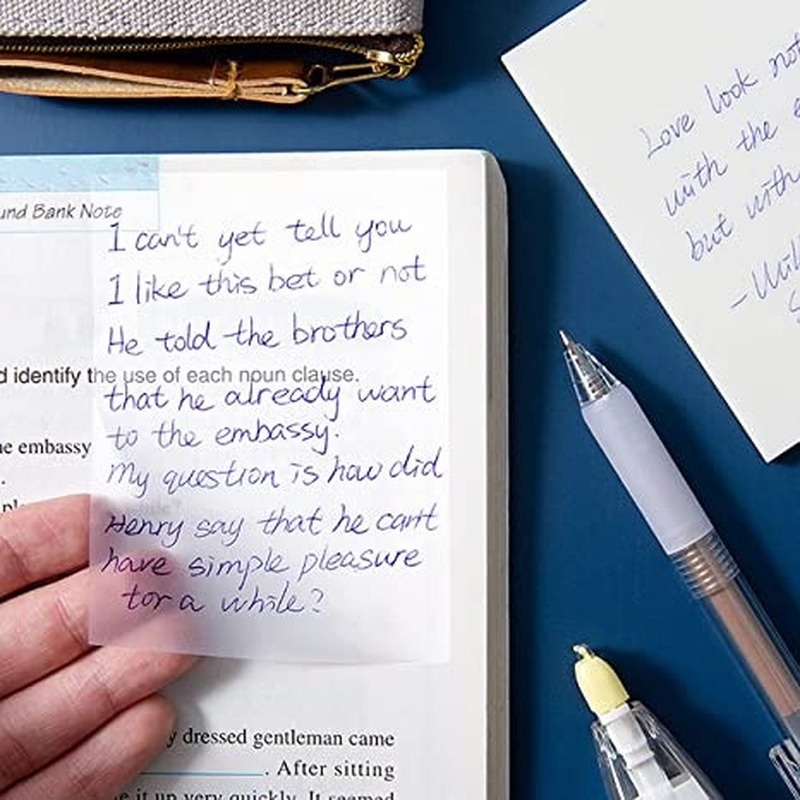 und Bank Note
I can't yet tell you
I like this bet or not
He told the brothers
d identify the use of each noun clause.
that he already want
he embassy
to the embassy.
My question is how did
Henry say that he can't
have simple pleasure
for a while?
y dressed gentleman came
. After sitting
e it up very quickly. It seemed
Love look not
with the
but with